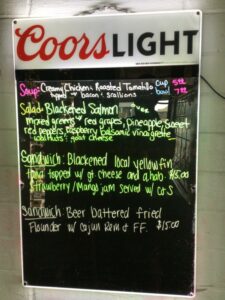 Coors LIGHT
Soup: Creamy Chicken & Roasted Tomatillo cup 5
topped w/ bacon & scallions bowl 7
Salad: Blackened Salmon
mixed greens w/ red grapes, pineapple, sweet
red peppers, raspberry balsamic vinaigrette
walnuts & goat cheese
Sandwich: Blackened local yellowfin
tuna topped w/ gt cheese and a hab. $15.00
Strawberry/Mango jam served w/ C&S
Sandwich: Beer battered fried
Flounder w/ Cajun Rem & FF. $15.00